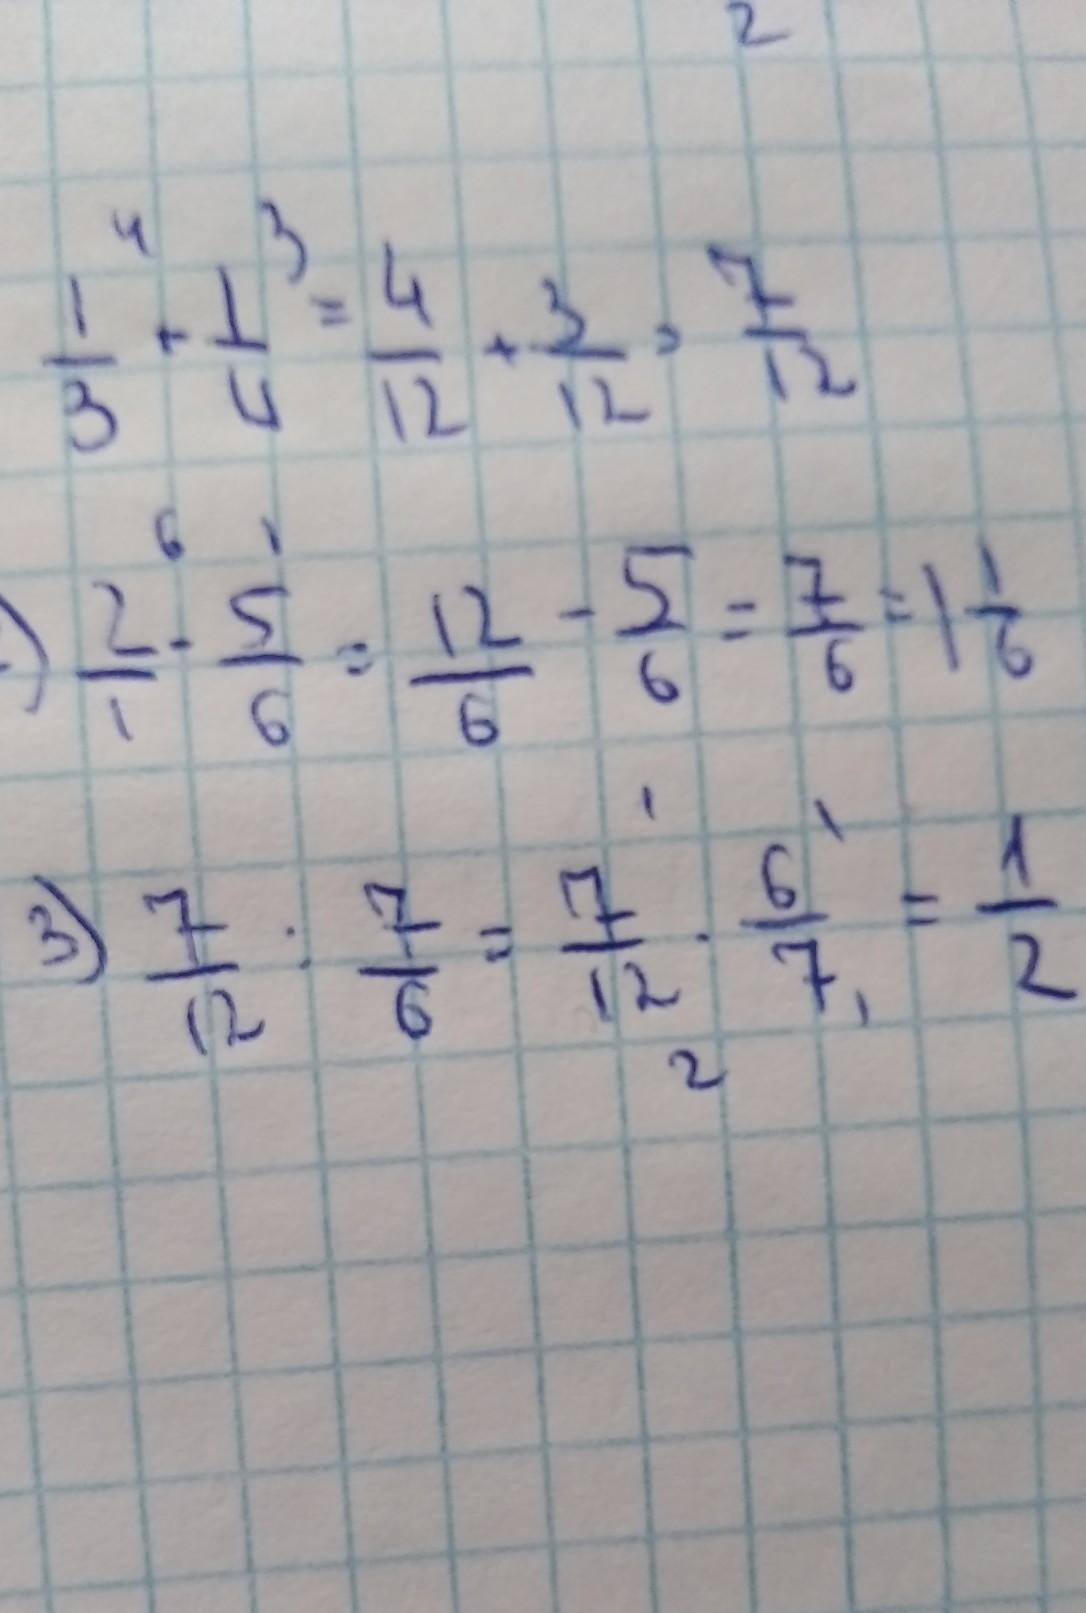 2
1/3 ⁴ + 1/4 ³ = 4/12 + 3/12 = 7/12
) 2/1 ⁶ - 5/6 ¹ = 12/6 - 5/6 = 7/6 = 1 1/6
3) 7/12 : 7/6 = 7/12 ¹₂ · 6/7 ¹₁ = 1/2